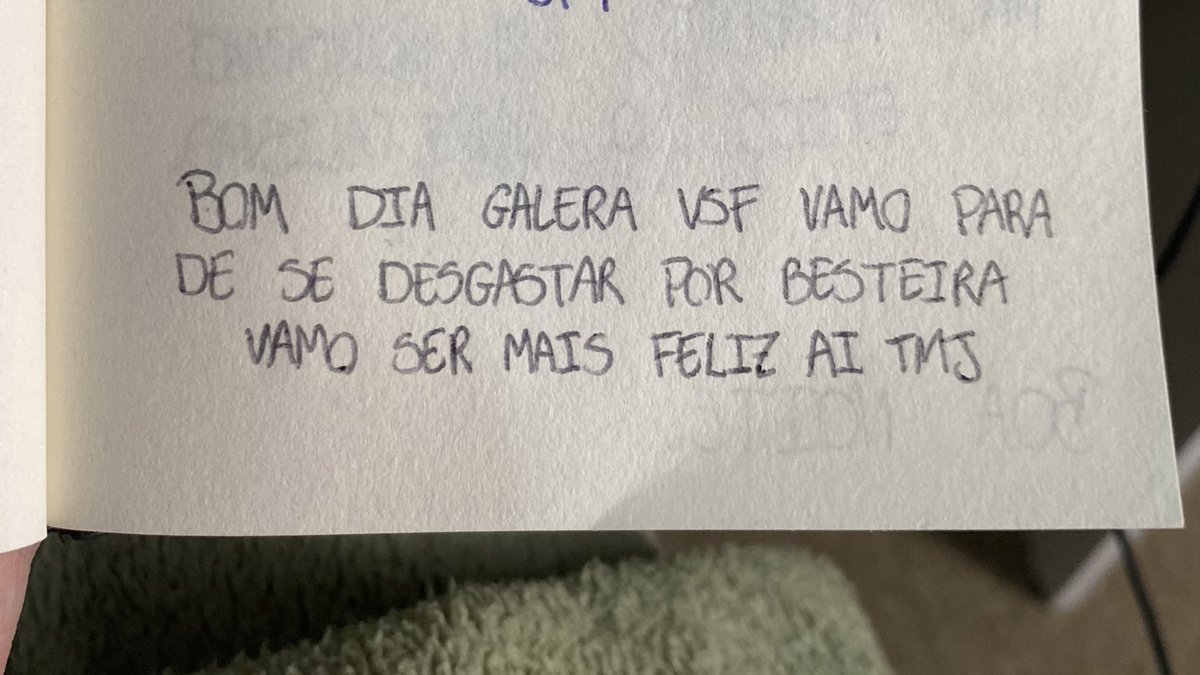 BOM DIA GALERA VSF VAMO PARA
DE SE DESGASTAR POR BESTEIRA
VAMO SER MAIS FELIZ AI TMJ
BOA NOITE